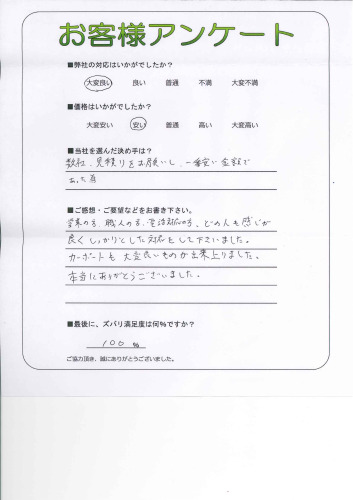 お客様アンケート
■弊社の対応はいかがでしたか？
大変良い 良い 普通 不満 大変不満
■価格はいかがでしたか？
大変安い 安い 普通 高い 大変高い
■当社を選んだ決め手は？
数社、見積りをお願いし、一番安い金額で
あった為
■ご感想・ご要望などをお書き下さい。
営業の方、職人の方、電話対応の方、どの人も感じが
良くしっかりとした対応をして下さいました。
カーポートも大変良いものが出来上りました。
本当にありがとうございました。
■最後に、ズバリ満足度は何%ですか？
100 %
ご協力頂き、誠にありがとうございました。